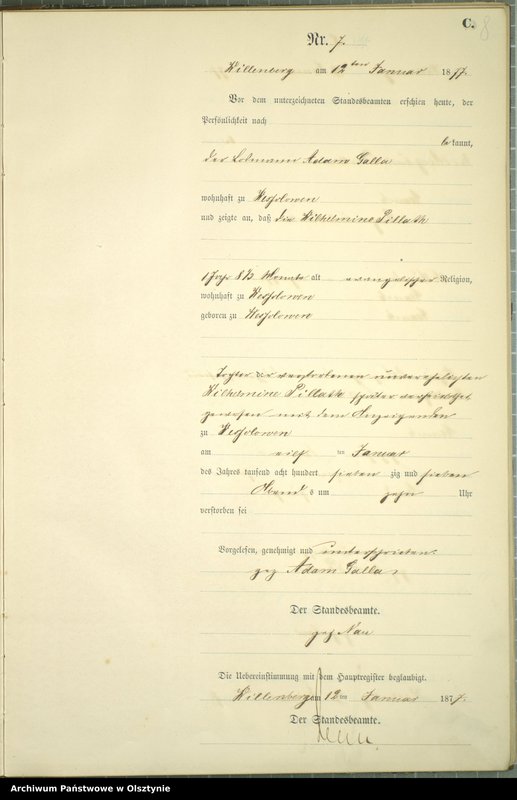 C.
8
Nr. 7.
Willenberg am 12ten Januar 1877.
Vor dem unterzeichneten Standesbeamten erschien heute, der
Persönlichkeit nach
bekannt,
der Lohmann Adam Galla
wohnhaft zu Wessolowen
und zeigte an, daß die Wilhelmine Pillath
1 Jahr 8½ Monate alt evangelischer Religion,
wohnhaft zu Wessolowen
geboren zu Wessolowen
Tochter der verstorbenen unverehelichten
Wilhelmine Pillath später verheirathet
gewesen mit dem Anzeigenden
zu Wessolowen
am elf ten Januar
des Jahres tausend acht hundert sieben zig und sieben
Abends um zehn Uhr
verstorben sei
Vorgelesen, genehmigt und unterschrieben
gez Adam Galla
Der Standesbeamte.
gez Nau
Die Uebereinstimmung mit dem Hauptregister beglaubigt.
Willenberg am 12ten Januar 1877.
Der Standesbeamte.
Archiwum Państwowe w Olsztynie